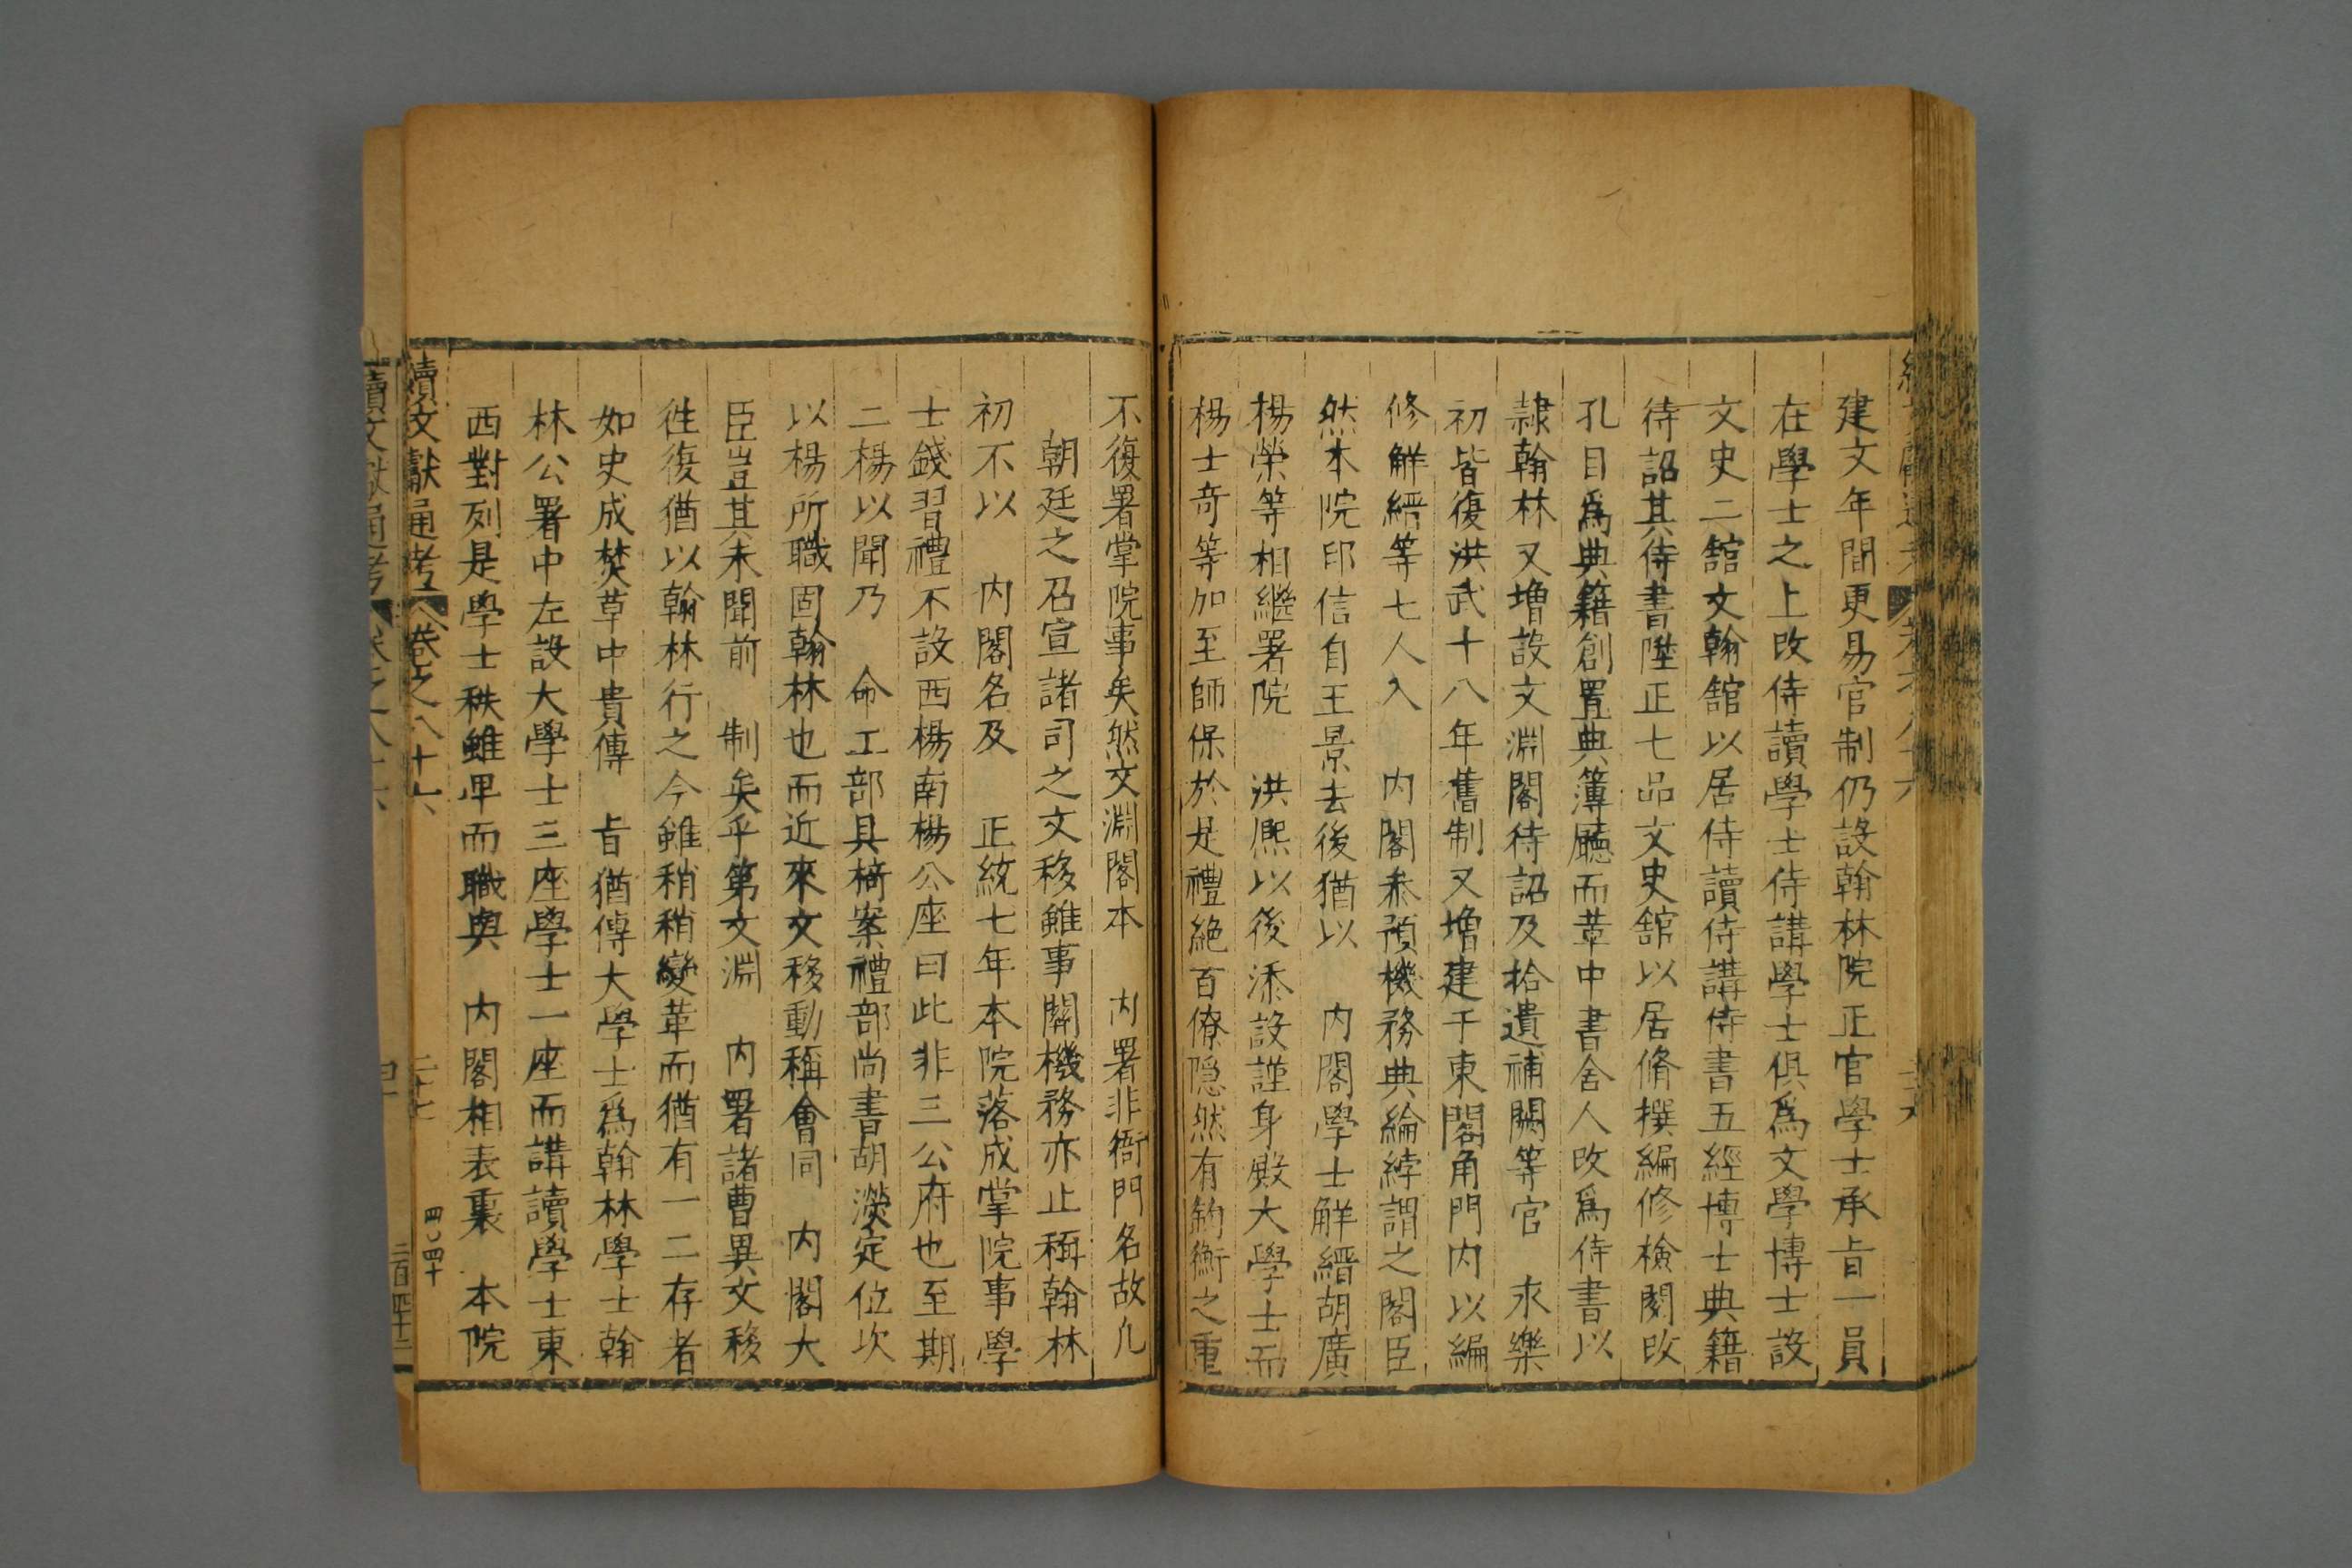 建文年間更易官制仍設翰林院正官學士承旨一員
在學士之上改侍讀學士侍講學士俱爲文學博士設
文史二舘文翰舘以居侍讀侍講侍書五經博士典籍
待詔其侍書陞正七品文史舘以居脩撰編修檢閱改
孔目爲典籍創置典簿廳而革中書舍人改爲侍書以
隷翰林又增設文淵閣待詔及拾遺補闕等官　永樂
初皆復洪武十八年舊制又增建于東閣角門内以編
修解縉等七人入　内閣叅預機務典綸綍謂之閣臣
然本院印信自王景去後猶以　内閣學士解縉胡廣
楊榮等相繼署院　洪熈以後添設謹身殿大學士而
楊士竒等加至師保於是禮絶百僚隠然有鈞衡之重
不復署掌院事矣然文淵閣本　内署非衙門名故凢
朝廷之召宣諸司之文移雖事關機務亦止稱翰林
初不以　内閣名及　正統七年本院落成掌院事學
士錢習禮不設西楊南楊公座曰此非三公府也至期
二楊以聞乃　命工部具椅案禮部尚書胡濙定位次
以楊所職固翰林也而近來文移動稱會同　内閣大
臣豈其未聞前　制矣乎第文淵　内署諸曹異文移
徃復猶以翰林行之今雖稍稍變革而猶有一二存者
如史成焚草中貴傳　旨猶傳大學士爲翰林學士翰
林公署中左設大學士三座學士一座而講讀學士東
西對列是學士秩雖卑而職與　内閣相表裏　本院
續文獻通考　卷之八十六　二十七　四〇四十
續文獻通考　卷之八十六　二百四十二